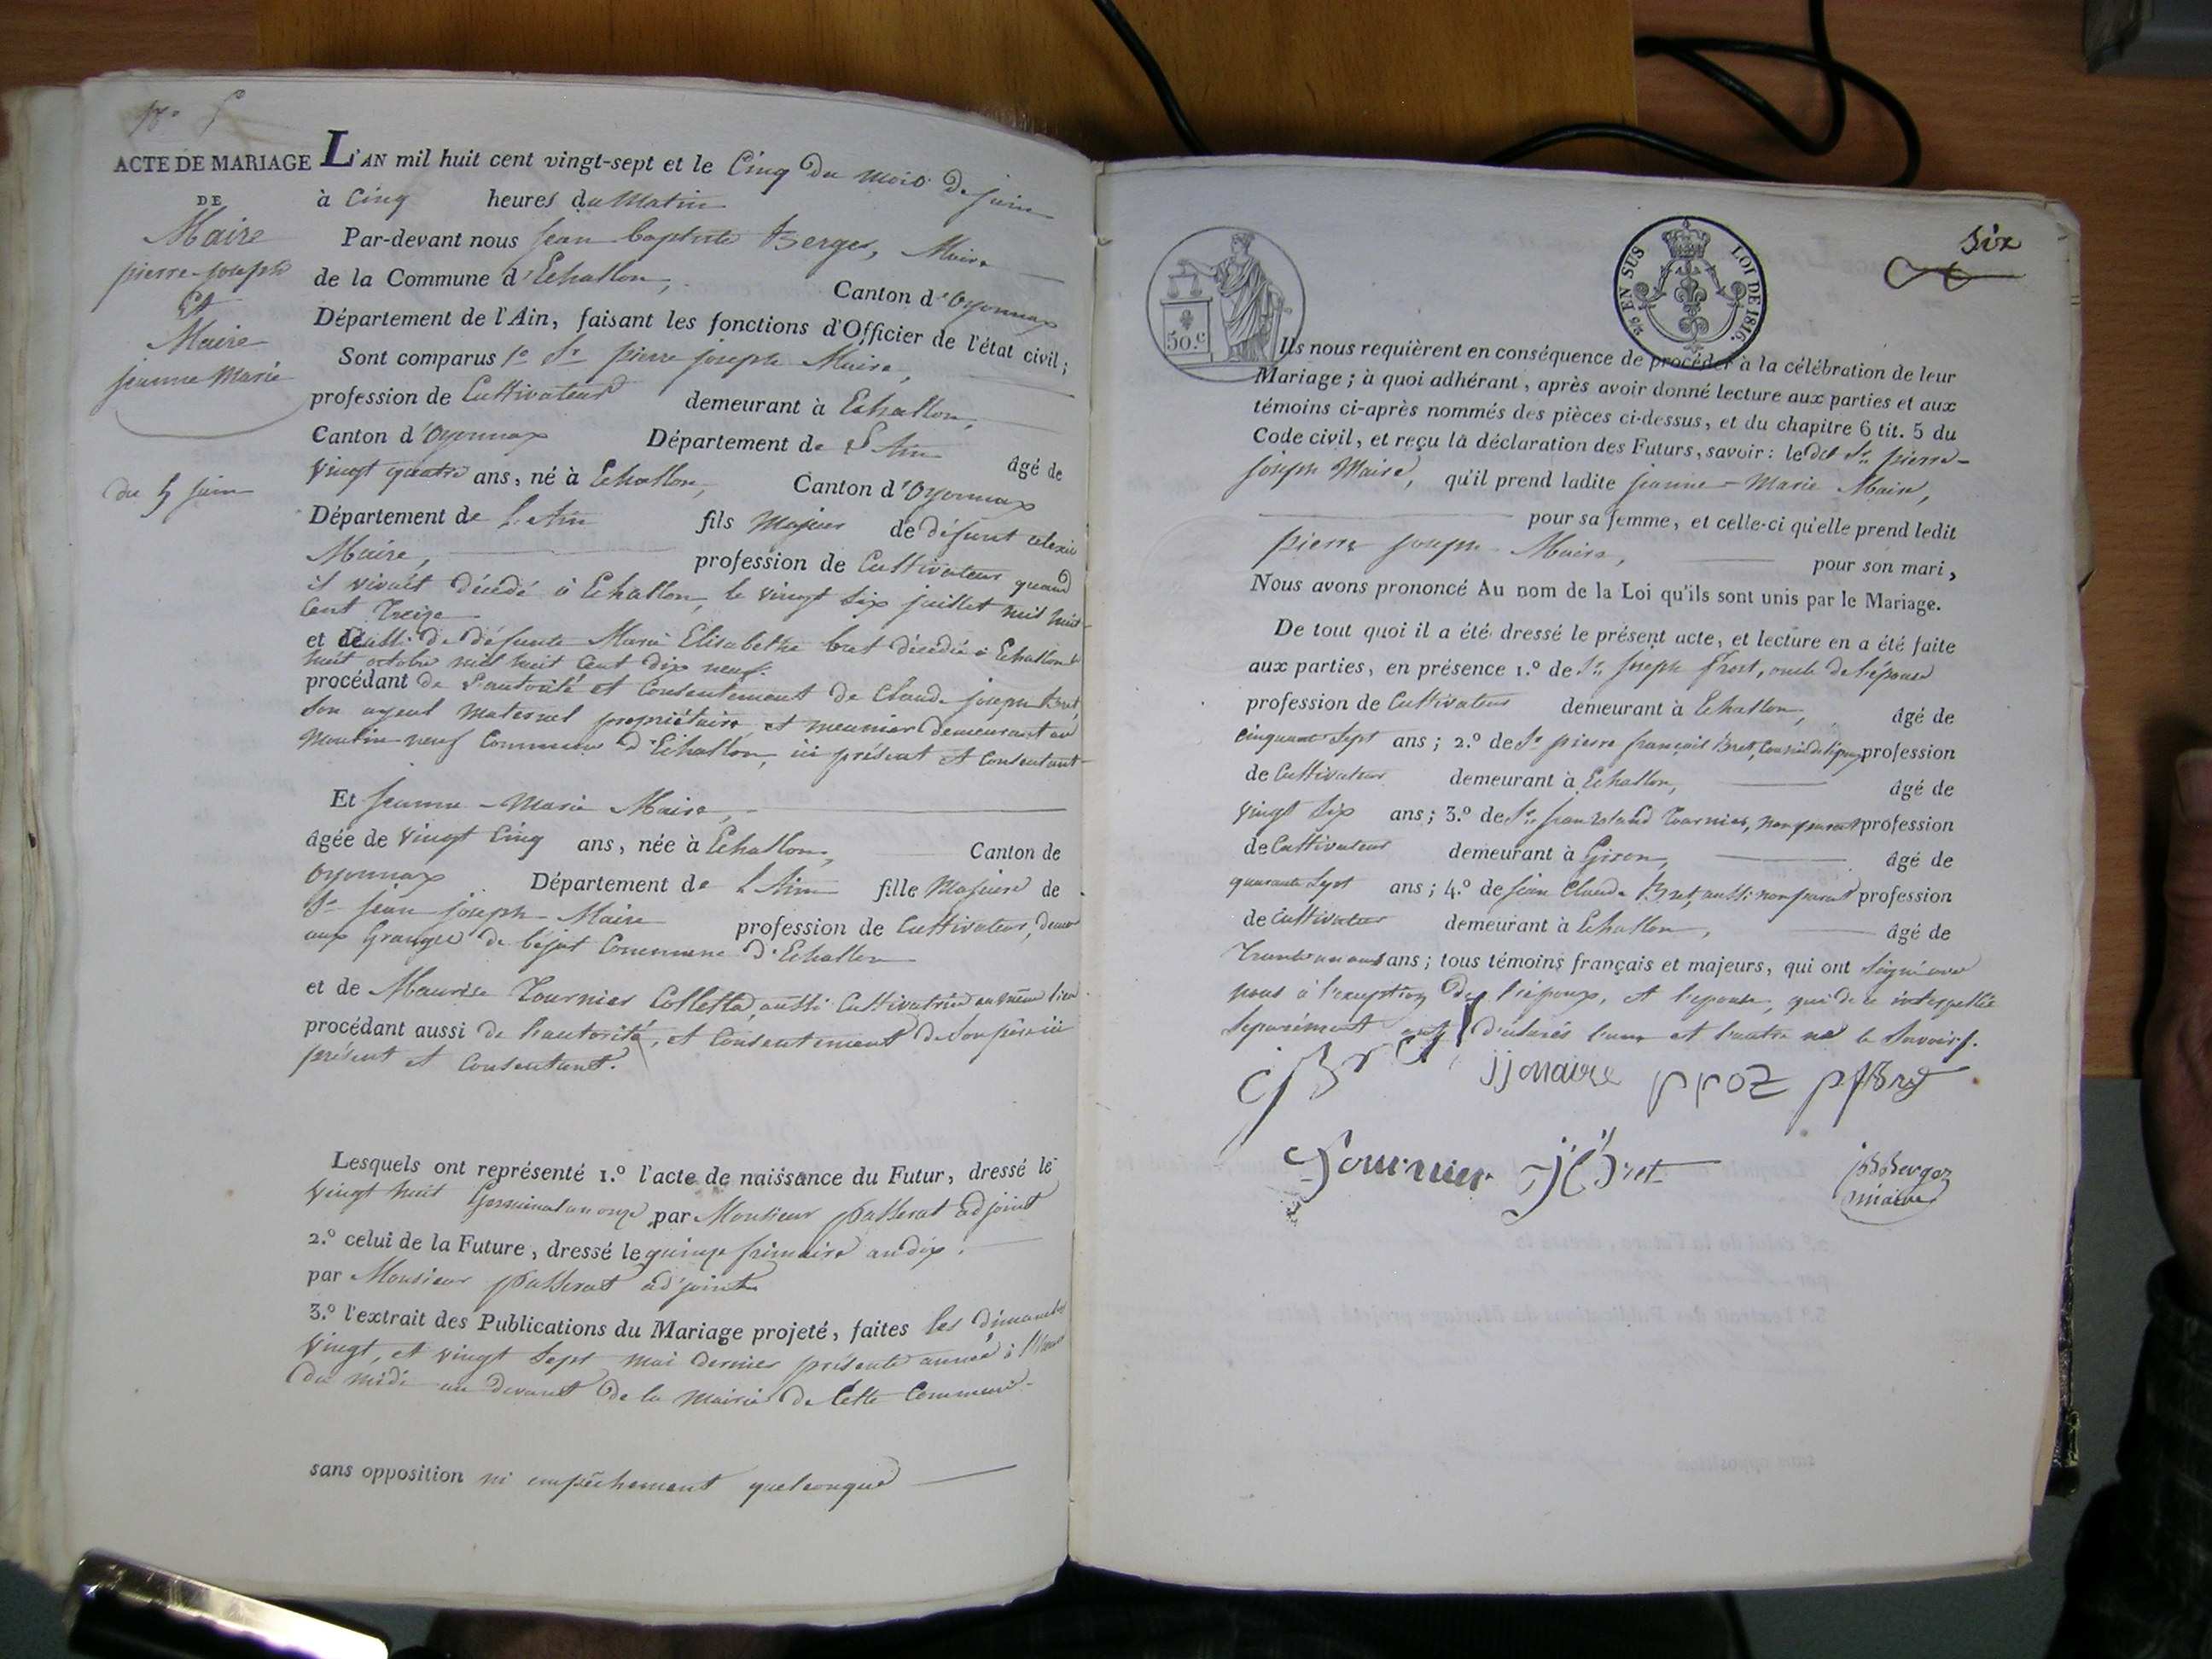 N.° 5
ACTE DE MARIAGE
DE
Maire
pierre-joseph
Et
Maire
jeanne Marie
du 5 juin
L'AN mil huit cent vingt-sept et le Cinq du mois de juin
à Cinq heures du Matin
Par-devant nous jean baptiste Berger, Maire
de la Commune d'Echallon, Canton d'Oyonnax
Département de l'Ain, faisant les fonctions d'Officier de l'état civil;
Sont comparus 1.° Sr. pierre joseph Maire,
profession de Cultivateur demeurant à Echallon,
Canton d'Oyonnax Département de L'Ain âgé de
vingt quatre ans, né à Echallon, Canton d'Oyonnax
Département de L'Ain fils Majeur de défunt alexis
Maire, profession de Cultivateur quand
il vivait décédé à Echallon, le vingt six juillet mil huit
cent treize
et aussi de défunte Marie Elisabethe bret décédée à Echallon le
huit octobre mil huit cent dix neuf.
procédant de L'autorité et Consentement de Claude joseph Bret,
Son ayeul maternel propriétaire et meunier demeurant au
Moulin neuf Commune d'Echallon, ici présent et Consentant
Et jeanne-Marie Maire,
âgée de vingt Cinq ans, née à Echallon, Canton de
Oyonnax Département de L'Ain fille Majeure de
Sr. jean joseph-Maire profession de Cultivateur, demt
aux Granges de Commune d'Echallon
et de Maurise Tournier Colletta, aussi Cultivatrice au même lieu
procédant aussi de L'autorité, et Consentement de son père ici
présent et Consentant.
Lesquels ont représenté 1.° l'acte de naissance du Futur, dressé le
vingt huit Germinal an onze par Monsieur passerat adjoint
2.° celui de la Future, dressé le quinze frimaire an dix.
par Monsieur passerat ad'joint
3.° l'extrait des Publications du Mariage projeté, faites les dimanches
vingt, et vingt Sept mai dernier présente année à l'heure
du midi au devant de la mairie de cette Commune.
sans opposition ni empêchement quelconque
Six
50.c
2/5 EN SUS LOI DE 1816.
Ils nous requièrent en conséquence de procéder à la célébration de leur
Mariage; à quoi adhérant, après avoir donné lecture aux parties et aux
témoins ci-après nommés des pièces ci-dessus, et du chapitre 6 tit. 5 du
Code civil, et reçu la déclaration des Futurs, savoir: le dit Sr. pierre-
joseph Maire, qu'il prend ladite jeanne-Marie Maire,
pour sa femme, et celle-ci qu'elle prend ledit
pierre joseph-Maire, pour son mari,
Nous avons prononcé Au nom de la Loi qu'ils sont unis par le Mariage.
De tout quoi il a été dressé le présent acte, et lecture en a été faite
aux parties, en présence 1.° de Sr. joseph Prost, oncle de l'épouse
profession de Cultivateur demeurant à Echallon, âgé de
cinquante Sept ans; 2.° de Sr. pierre françois Bret, Cousin de l'époux profession
de Cultivateur demeurant à Echallon, âgé de
vingt Six ans; 3.° de Sr. jean Tournier, non parent profession
de Cultivateur demeurant à Giron, âgé de
quarante Sept ans; 4.° de jean Claude Bret, aussi non parent profession
de Cultivateur demeurant à Echallon, âgé de
trente un ans; tous témoins français et majeurs, qui ont Signé avec
nous à l'exception de l'époux, et l'épouse, qui de ce interpellés
Séparément ont déclarés l'une et l'autre ne le Savoir.
cjBret jjmaire pros pfBret
Tournier JCBret jbBerger
maire